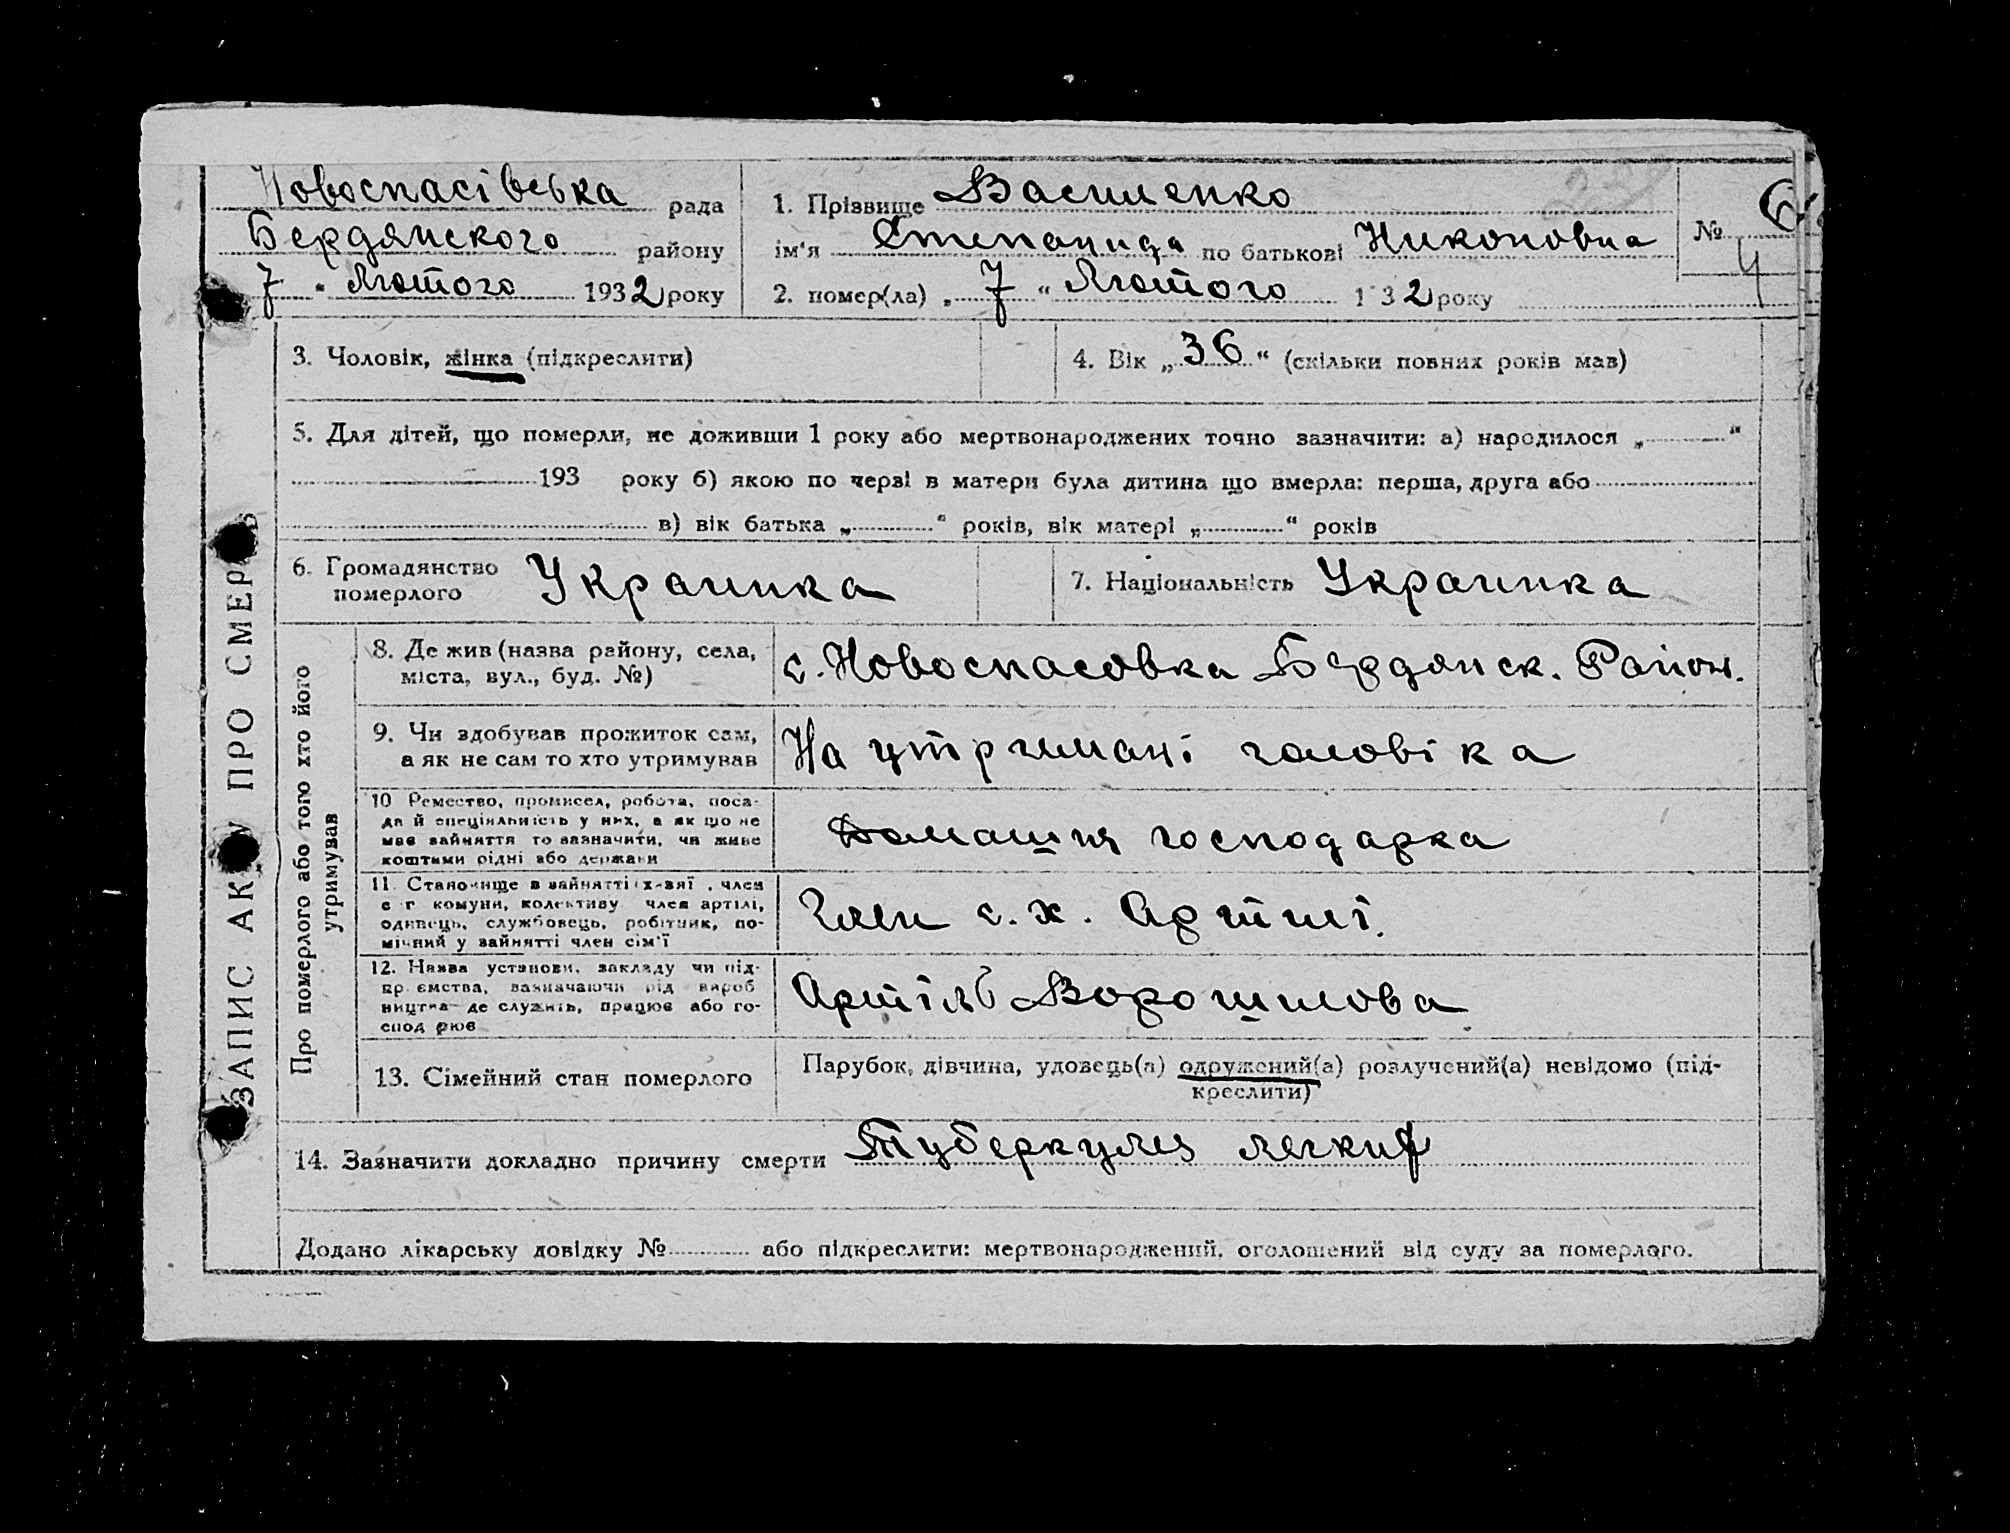 Новоспасівська рада
Бердянского району
7 " Лютого 1932 року
1. Прізвище Василенко
ім'я Степанида по батькові Никоновна
2. помер(ла) „ 7 " Лютого 1 32 року
№ 6
4
3. Чоловік, жінка (підкреслити)
4. Вік „ 36 " (скільки повних років мав)
5. Для дітей, що померли, не доживши 1 року або мертвонароджених точно зазначити: а) народилося „ "
193 року б) якою по черзі в матери була дитина що вмерла: перша, друга або
в) вік батька „ " років, вік матері „ " років
6. Громадянство
померлого Украинка
7. Національність Украинка
ЗАПИС АКТУ ПРО СМЕРТЬ
Про померлого або того хто його
утримував
8. Де жив (назва району, села,
міста, вул., буд. №)
с. Новоспасовка Бердянск. Район.
9. Чи здобував прожиток сам,
а як не сам то хто утримував
На утримані чоловіка
10 Ремество, промисел, робота, поса-
да й спеціяльність у них, а як що не
має зайняття то зазначити, чи живе
коштами рідні або держави
Домашня господарка
11. Становище в зайнятті , член
с г комуни, колективу член артілі,
одинець, службовець, робітник, по-
мічний у зайнятті член сім'ї
Член с. х. Артилі.
12. Назва установи, закладу чи під-
пр ємства, зазначаючи рід вироб
ництва де служить, працює або го-
спод рює
Артіль Ворошилова
13. Сімейний стан померлого
Парубок, дівчина, удовець(а) одружений(а) розлучений(а) невідомо (під-
креслити)
14. Зазначити докладно причину смерти Туберкулез легких
Додано лікарську довідку № або підкреслити: мертвонароджений, оголошений від суду за померлого.